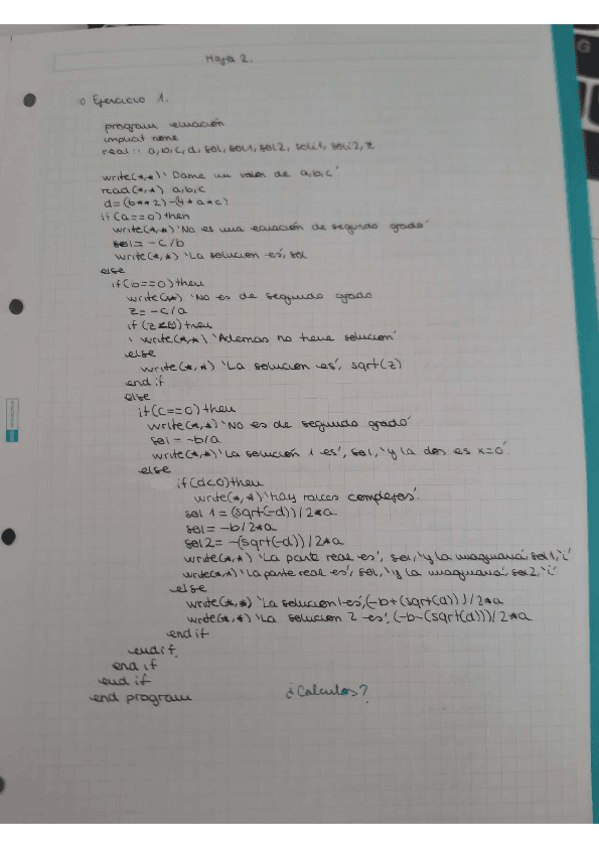 Hoja 2.
o Ejercicio 1.
program ecuación
implicit none
real :: a,b,c,d,sol,sol1,sol2,soli1,soli2,z
write(*,*)'Dame un valor de a,b,c'
read(*,*) a,b,c
d=(b**2)-(4*a*c)
if(a==0)then
write(*,*)'No es una ecuación de segundo grado'
sol=-c/b
write(*,*)'La solucion es', sol
else
if(b==0)then
write(*,*)'No es de segundo grado
z=-c/a
if(z<0)then
write(*,*)'Ademas no tiene solucion'
else
write(*,*)'La solucion es', sqrt(z)
end if
else
if(c==0)then
write(*,*)'No es de segundo grado'
sol=-b/a
write(*,*)'La solución 1 es', sol,'y la dos es x=0'
else
if(d<0)then
write(*,*)'hay raices complejas'.
sol 1=(sqrt(-d))/2*a
sol=-b/2*a
sol2=-(sqrt(-d))/2*a
write(*,*)'La parte real es', sol,'y la imaginaria', sol1,'i'
write(*,*)'La parte real es', sol,'y la imaginaria', sol2,'i'
else
write(*,*)'La solucion 1 es',(-b+(sqrt(d)))/2*a
write(*,*)'La solucion 2 es',(-b-(sqrt(d)))/2*a
end if
end if
end if
end if
end program
¿Calculos?